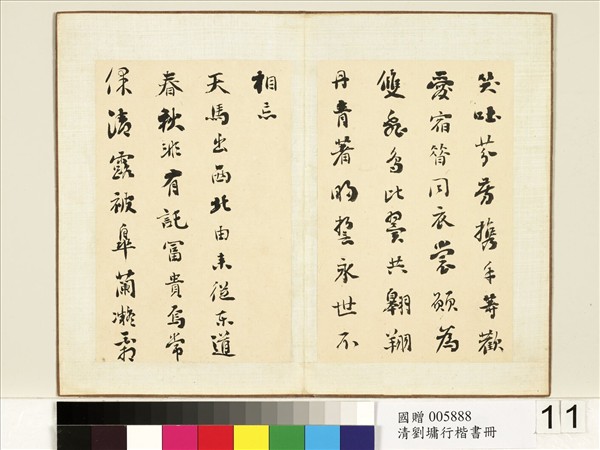 笑吐芬芳攜手等歡
愛宿昔同衣裳願為
雙飛鳥比翼共翱翔
丹青著明誓永世不
相忘
天馬出西北由来從東道
春秋非有託富貴焉常
保清露被皐蘭凝霜
國贈 005888
清劉墉行楷書冊
11